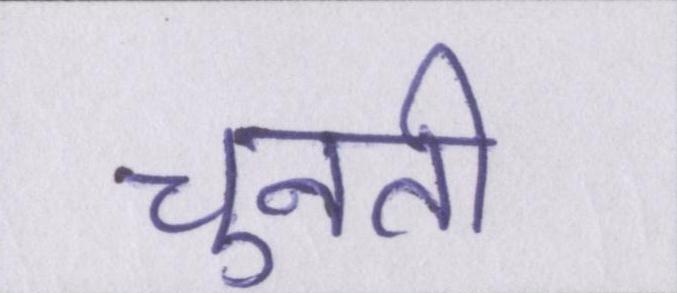 चुनती